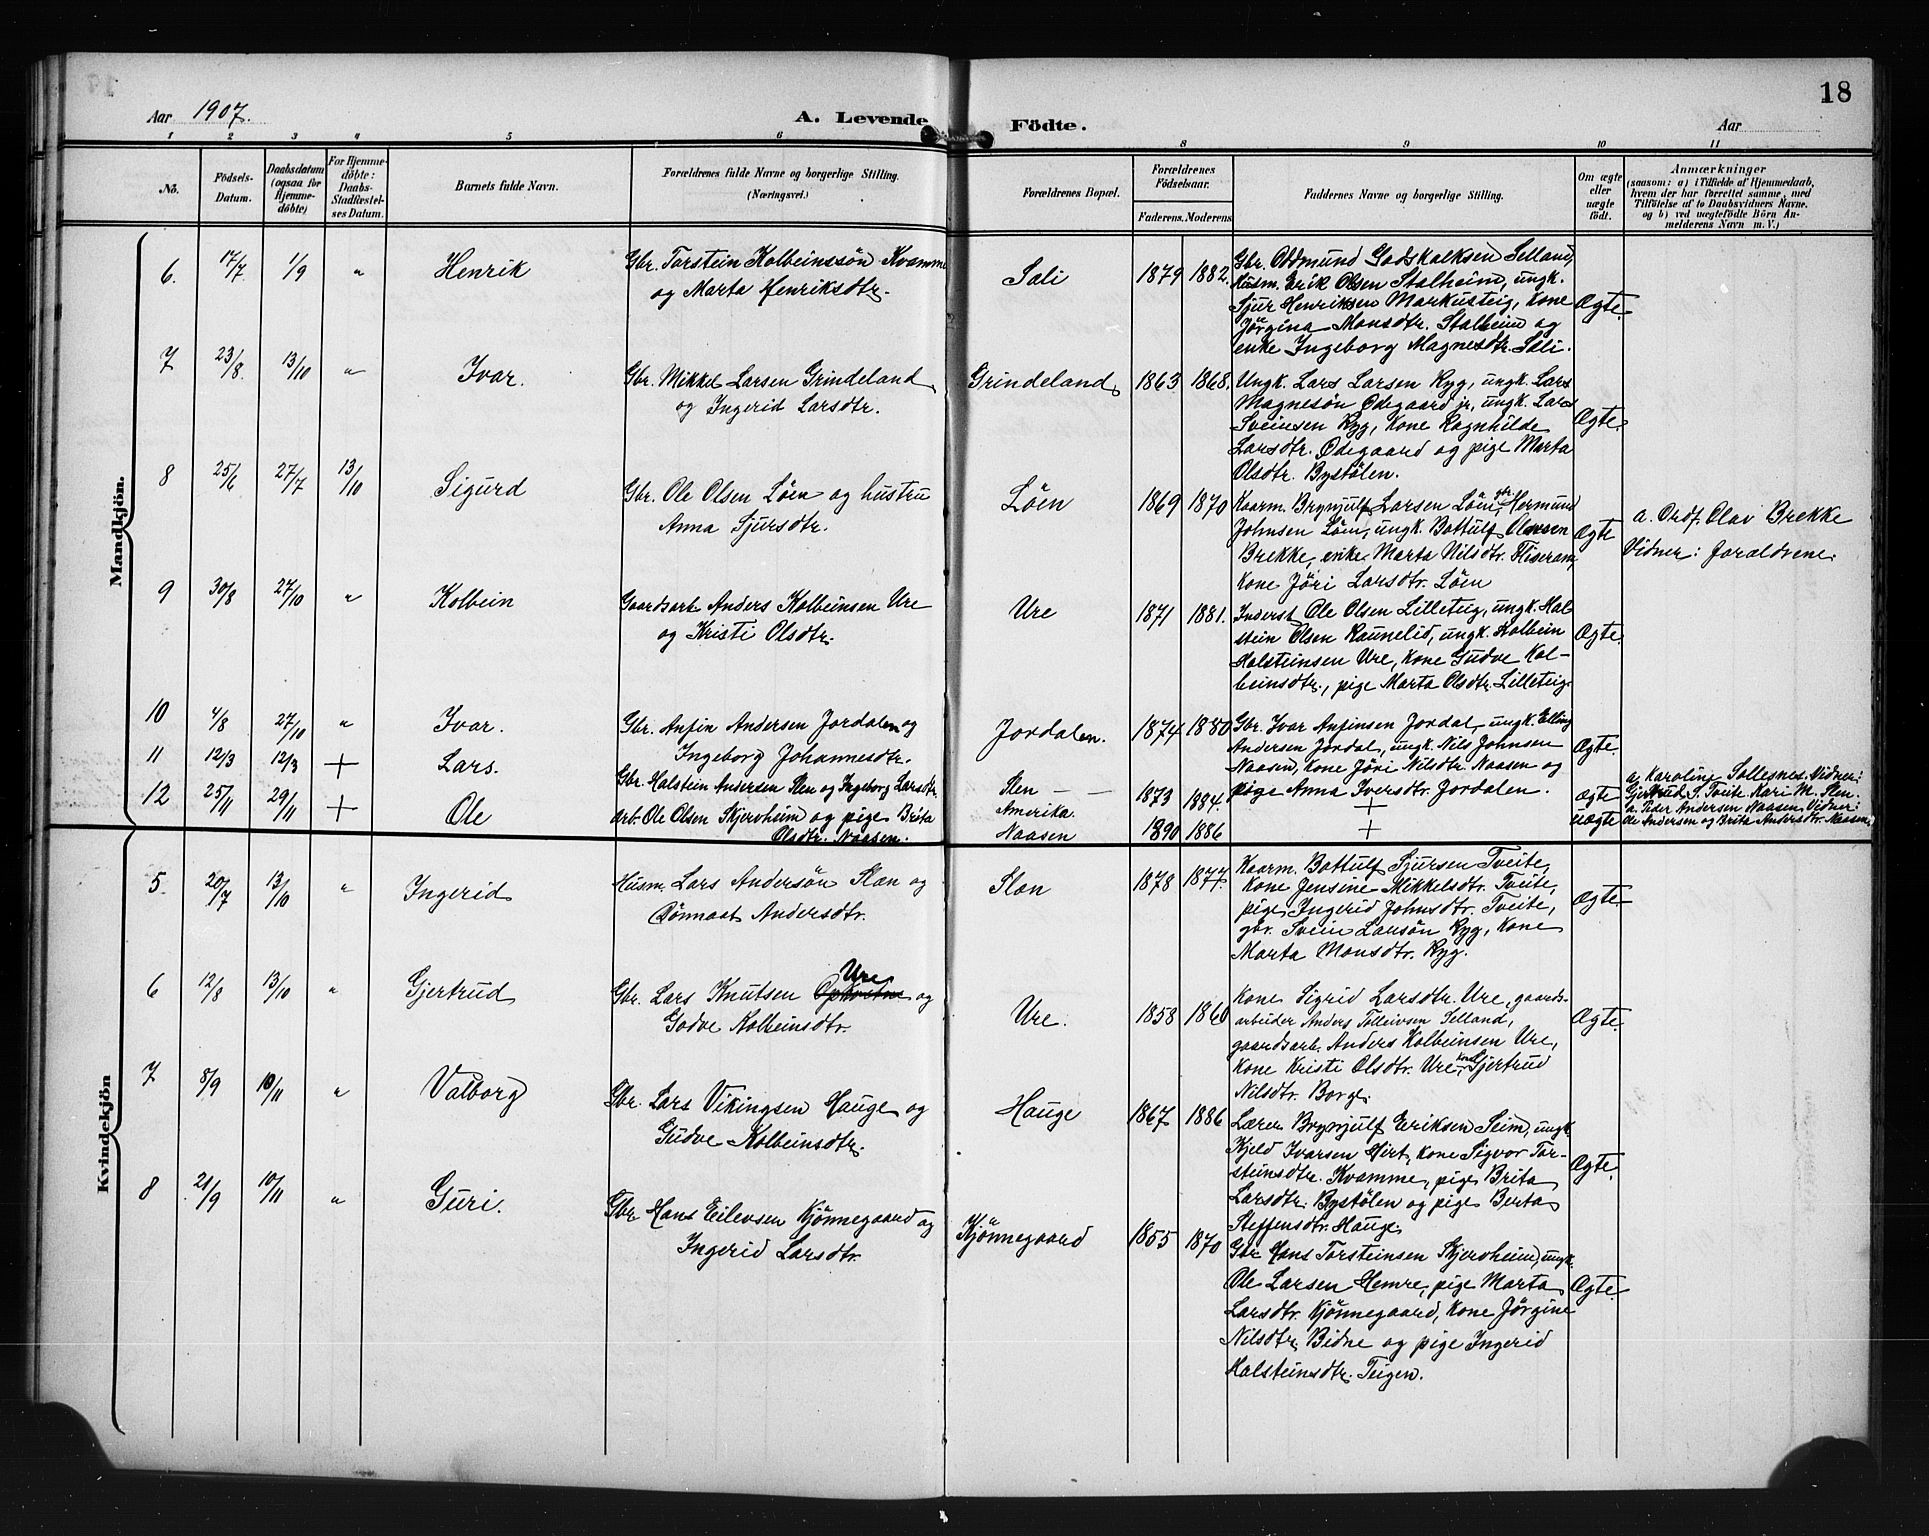 18
Aar 1907.
A. Levende
Födte.
Aar
1 2 3 4 5 6 8 9 10 11
No.
Födsels-
Datum.
Daabsdatum
(ogsaa for
Hjemme-
döbte)
For Hjemme-
döbte:
Daabs-
Stadfæstel-
ses Datum.
Barnets fulde Navn.
Forældrenes fulde Navne og borgerlige Stilling.
(Næringsvei.)
Forældrenes Bopæl.
Forældrenes
Födselsaar.
Faderens. Moderens.
Faddernes Navne og borgerlige Stilling.
Om ægte
eller
uægte
födt.
Anmærkninger
(saasom: a) i Tilfælde af Hjemmedaab,
hvem der har forrettet samme, med
Tilföielse af to Daabsvidners Navne.
og b) ved uægtefödte Börn An-
melderens Navn m. V.)
Mandkjön.
6. 17/7. 1/9 " Henrik
Gbr. Torstein Kolbeinssön Kvamme
og Marta Henriksdtr.
Sali 1879 1882.
Gbr. Oddmund Godskalksen Selland,
Husm. Erik Olsen Stalheim, ungk.
Sjur Henriksen Markusteig, kone
Jörgina Monsdtr. Stalheim og
enke Ingeborg Magnesdtr. Sali.
Ægte.
7 23/8. 13/10 " Ivar.
Gbr. Mikkel Larsen Grindeland
og Ingerid Larsdtr.
Grindeland 1863 1868.
Ungk. Lars Larsen Ryg, ungk. Lars
Magnesön Ødegaard jr, ungk. Lars
Sveinsen Ryg, kone Ragnhilde
Larsdtr. Ødegaard og pige Marta
Olsdtr. Bystölen.
Ægte.
8 25/6 27/7 13/10 Sigurd
Gbr. Ole Olsen Löen og hustru
Anna Sjursdtr.
Löen 1869 1870
Kaarm. Brynjulf Larsen Löen, gbr. Hermund
Johnsen Löen, ungk. Bottulf Olsen
Brekke, enke Marta Nilsdtr.
kone Jöri Larsdtr. Löen
Ægte
a. Ordf. Olav Brekke
Vidner: Foræeldrene.
9 30/8 27/10 " Kolbein
Gaardsarb. Anders Kolbeinsen Ure
og Kristi Olsdtr.
Ure 1871 1881.
Inderst Ole Olsen Lilleteig, ungk. Hal
stein Olsen Raunelid, ungk. Kolbein
Halsteinsen Ure, kone Gudve Kol-
beinsdtr., pige Marta Olsdtr. Lilleteig.
Ægte.
10 4/8 27/10 " Ivar.
Gbr. Anfin Andersen Jordalen og
Ingeborg Johannesdtr.
Jordalen. 1874 1880
Gbr. Ivar Anfinsen Jordal, ungk. Elling
Andersen Jordal, ungk. Nils Johnsen
Naasen, kone Jöri Nilsdtr. Naasen og
pige Anna Iversdtr. Jordalen.
Ægte.
11 12/3 12/3 + Lars.
Gbr. Halstein Andersen Slen og Ingeborg Larsdtr.
Slen — — 1873 1884. +
Ægte
a. Karoline Sollesnes. Vidner:
Gjertrud S. Tveite Kari M. Slen.
12 25/11 29/11 + Ole
arb. Ole Olsen Skjervheim og pige Brita
Olsdtr. Naasen.
Amerika.
Naasen 1890 1886 +
uægte
a. Peder Andersen Naasen. Vidner:
Ole Andersen og Brita Andersdtr. Naasen.
Kvindekjön
5. 20/7 13/10 " Ingerid
Husm. Lars Andersön Slon og
Önnaat Andersdtr.
Slon 1878 1877.
Kaarm. Bottulf Sjursen Tveite,
kone Jensine Mikkelsdtr. Tveite,
pige Ingerid Johnsdtr. Tveite,
gbr. Svein Larsön Ryg, kone
Marta Monsdtr. Ryg.
Ægte.
6 12/8 13/10 " Gjertrud
Ure
Gbr. Lars Knutsen og
Godve Kolbeinsdtr.
Ure. 1858 1860
Kone Sigrid Larsdtr. Ure, gaards-
arbeider Anders Tolleivsen Selland,
gaardsarb. Anders Kolbeinsen Ure,
kone Kristi Olsdtr. Ure, kone Gjertrud
Nilsdtr. Borge.
Ægte.
7 8/9 10/11 " Valborg
Gbr. Lars Vikingsen Hauge og
Gudve Kolbeinsdtr.
Hauge 1867 1886
Lærer Brynjulf Eriksen Seim, ungk.
Kjeld Ivarsen Hirt, kone Sigvor Tor-
steinsdtr. Kvamme, pige Brita
Larsdtr. Bystölen og pige Berta
Steffensdtr. Hauge.
Ægte.
8 21/9 10/11 " Guri.
Gbr. Hans Eilevsen Kjönnegaard og
Ingerid Larsdtr.
Kjönnegaard 1855 1870
Gbr. Hans Torsteinsen Skjervheim, ungk.
Ole Larsen Hemre, pige Marta
Larsdtr. Kjönnegaard, kone Jörgine
Nilsdtr. Bidne og pige Ingerid
Halsteinsdtr. Teigen.
Ægte.